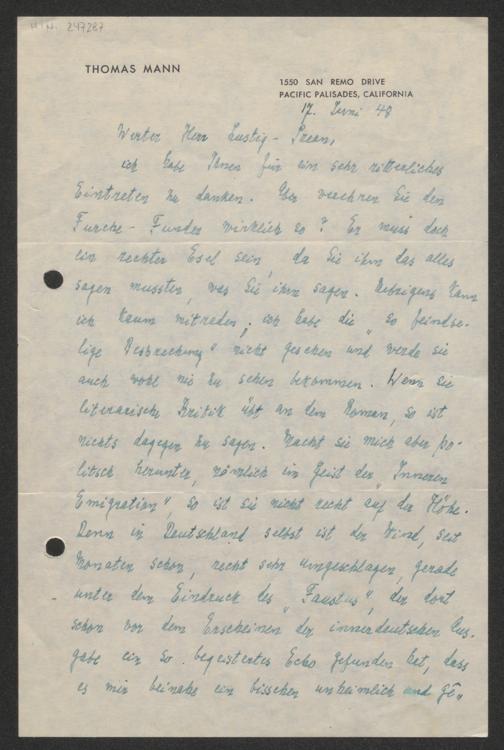 H.I.N. 247287
THOMAS MANN
1550 SAN REMO DRIVE
PACIFIC PALISADES, CALIFORNIA
17. Juni 48
Werter Herr Lustig-Prean,
ich habe Ihnen für ein sehr ritterliches
Eintreten zu danken. Aber verehren Sie den
Furche-Funder wirklich so? Er muss doch
ein rechter Esel sein, da Sie ihm das alles
sagen mussten, was Sie ihm sagen. Uebrigens kann
ich kaum mitreden; ich habe die „so feindse-
lige Besprechung" nicht gesehen und werde sie
auch wohl nie zu sehen bekommen. Wenn sie
literarische Kritik übt an dem Roman, so ist
nichts dagegen zu sagen. Macht sie mich aber po-
litisch herunter, nämlich im Geist der „Inneren
Emigration", so ist sie nicht recht auf der Höhe.
Denn in Deutschland selbst ist der Wind, seit
Monaten schon, recht sehr umgeschlagen, gerade
unter dem Eindruck des „Faustus", der dort
schon vor dem Erscheinen der innerdeutschen Aus-
gabe ein so begeistertes Echo gefunden hat, dass
es mir beinahe ein bisschen unheimlich und